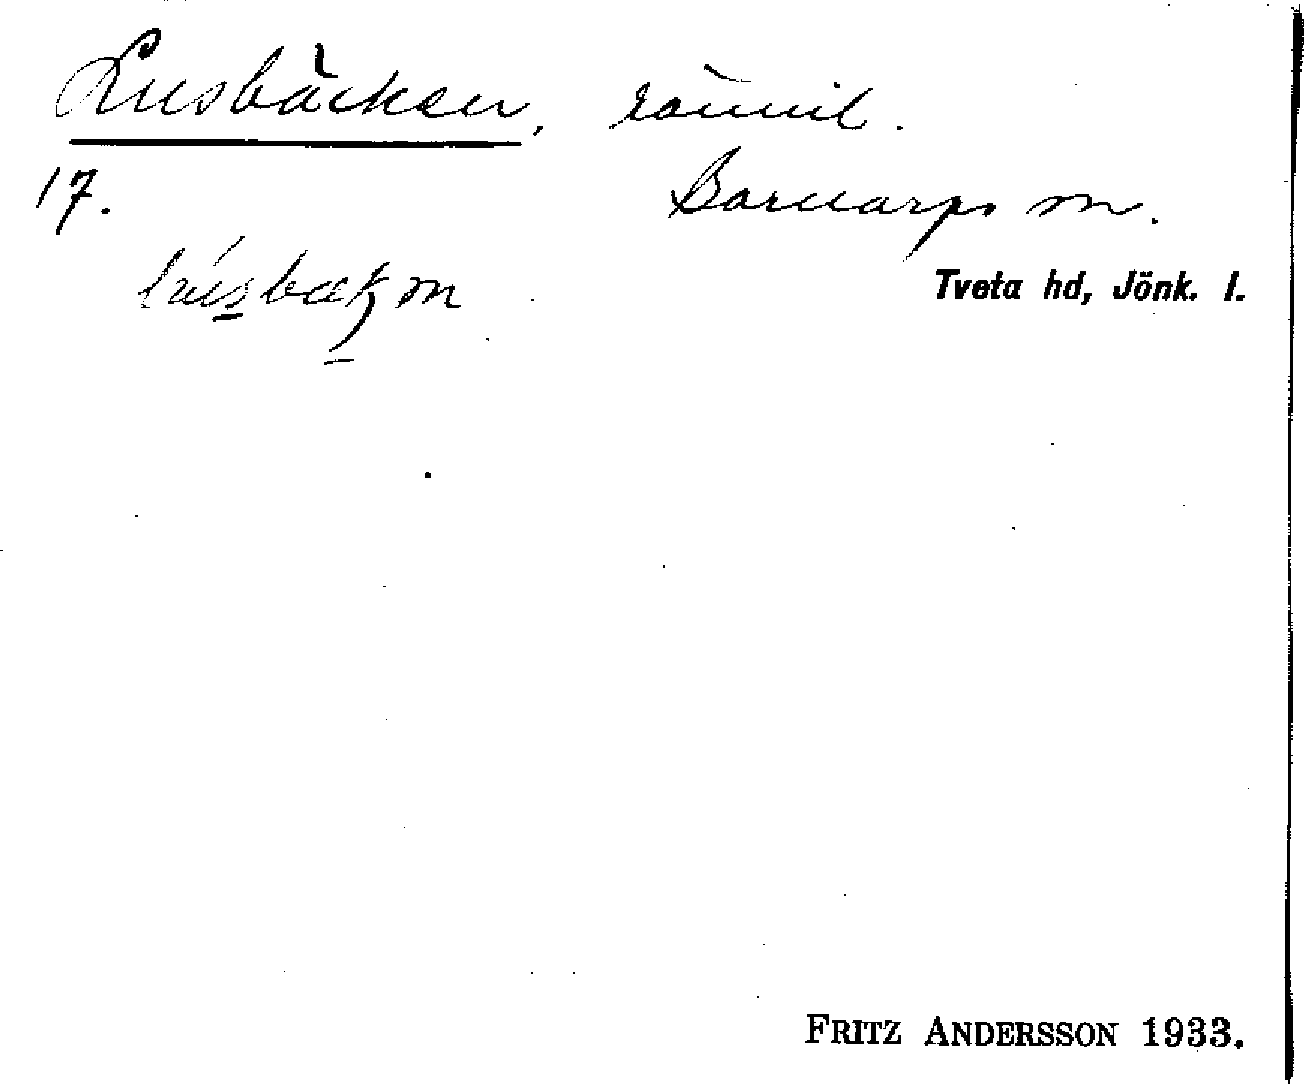 Lusbäcken, rämnil.
17. Barnarps sn.
Tveta hd, Jönk. l.
FRITZ ANDERSSON 1933.